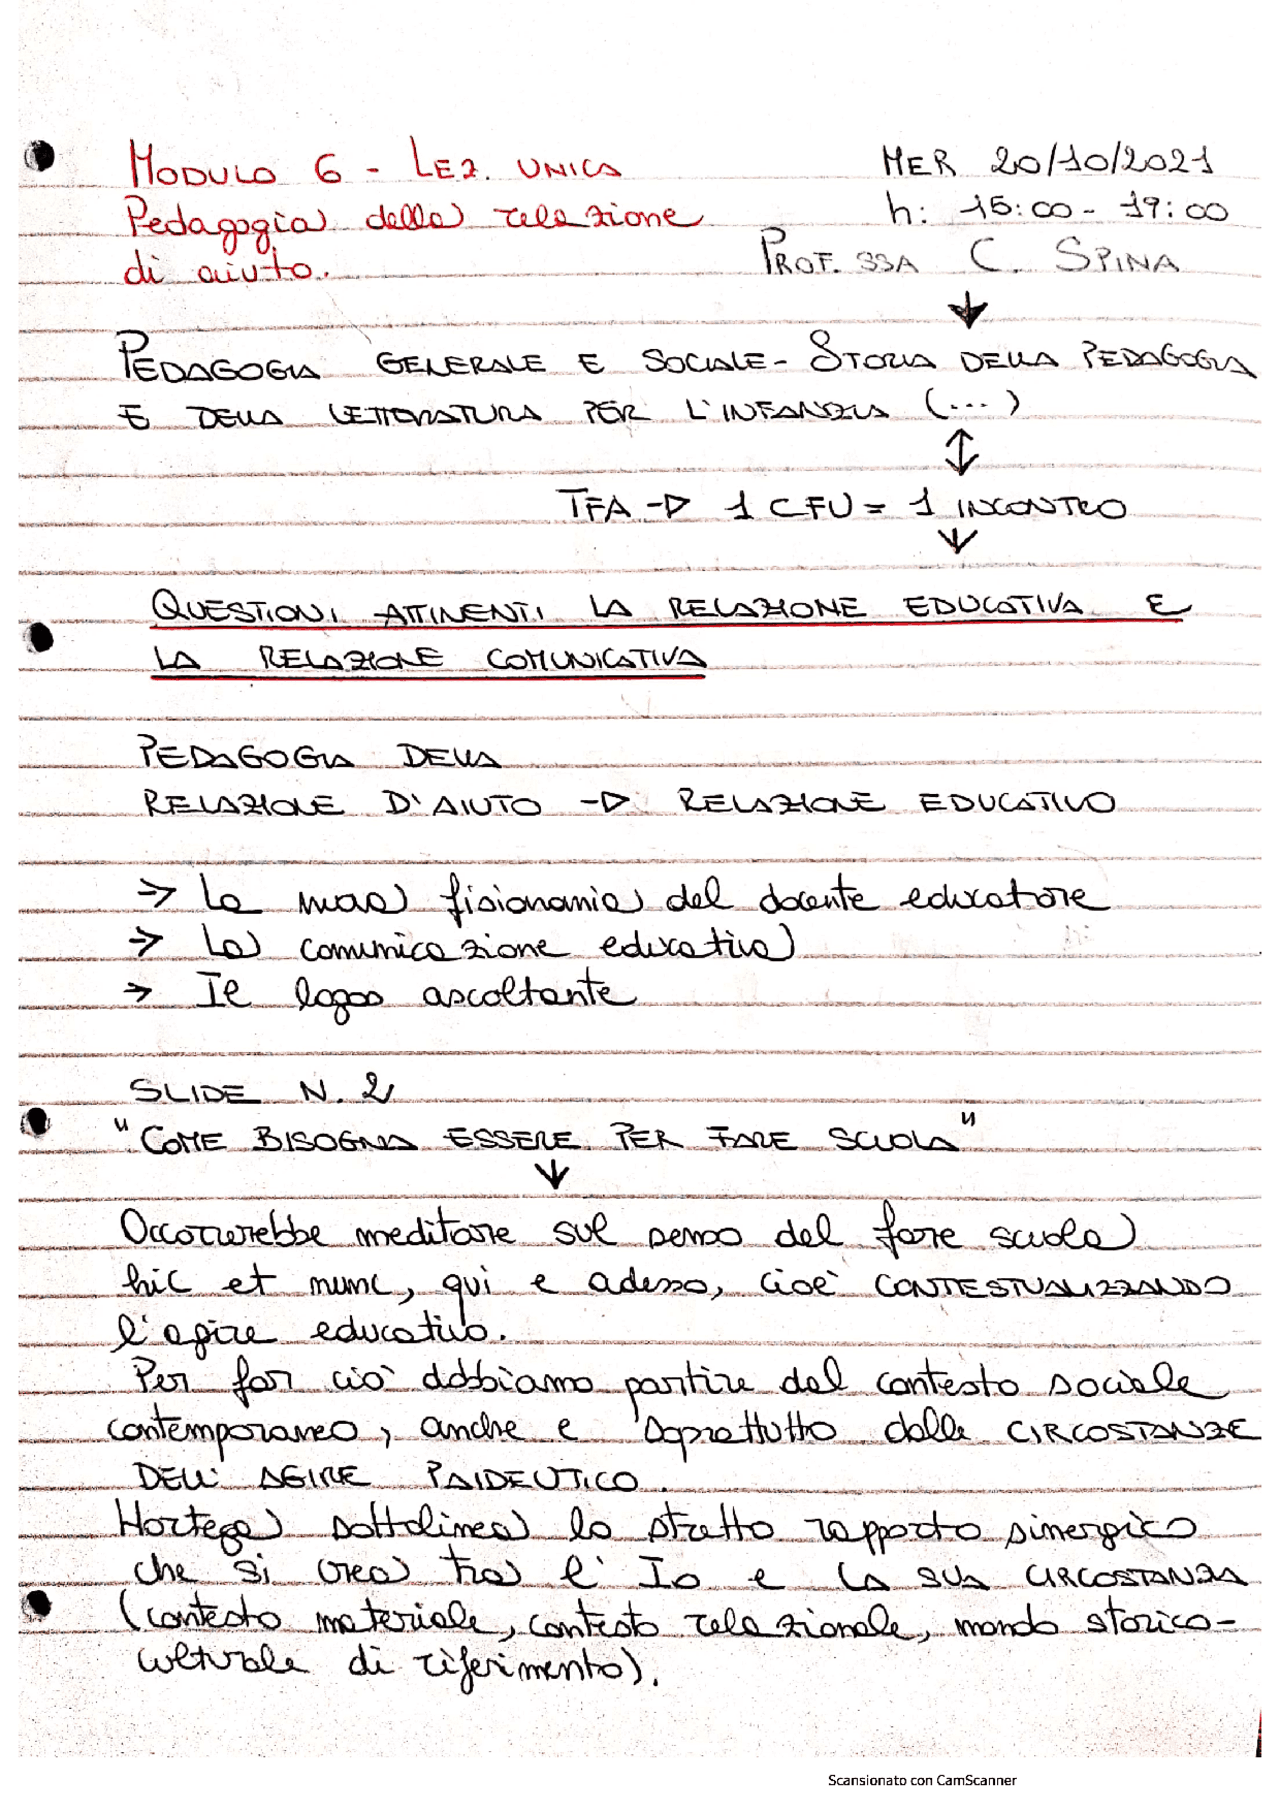 MODULO 6 - LEZ. UNICA
MER 20/10/2021
Pedagogia della relazione
h: 15:00 - 19:00
di aiuto.
PROF.SSA C. SPINA
PEDAGOGIA GENERALE E SOCIALE - STORIA DELLA PEDAGOGIA
E DELLA LETTERATURA PER L'INFANZIA (...)
TFA -▷ 1 CFU = 1 INCONTRO
QUESTIONI ATTINENTI LA RELAZIONE EDUCATIVA E
LA RELAZIONE COMUNICATIVA
PEDAGOGIA DELLA
RELAZIONE D'AIUTO -▷ RELAZIONE EDUCATIVO
→ La fisionomia del docente educatore
→ La comunicazione educativa
→ Il logos ascoltante
SLIDE N. 2
"COME BISOGNA ESSERE PER FARE SCUOLA"
Occorrerebbe meditare sul senso del fare scuola
hic et nunc, qui e adesso, cioè CONTESTUALIZZANDO
l'agire educativo.
Per far ciò dobbiamo partire dal contesto sociale
contemporaneo, anche e soprattutto dalle CIRCOSTANZE
DELL'AGIRE PAIDEUTICO.
Hortega sottolinea lo stretto rapporto sinergico
che si crea tra l'Io e LA SUA CIRCOSTANZA
(contesto materiale, contesto relazionale, mondo storico-
culturale di riferimento).
Scansionato con CamScanner